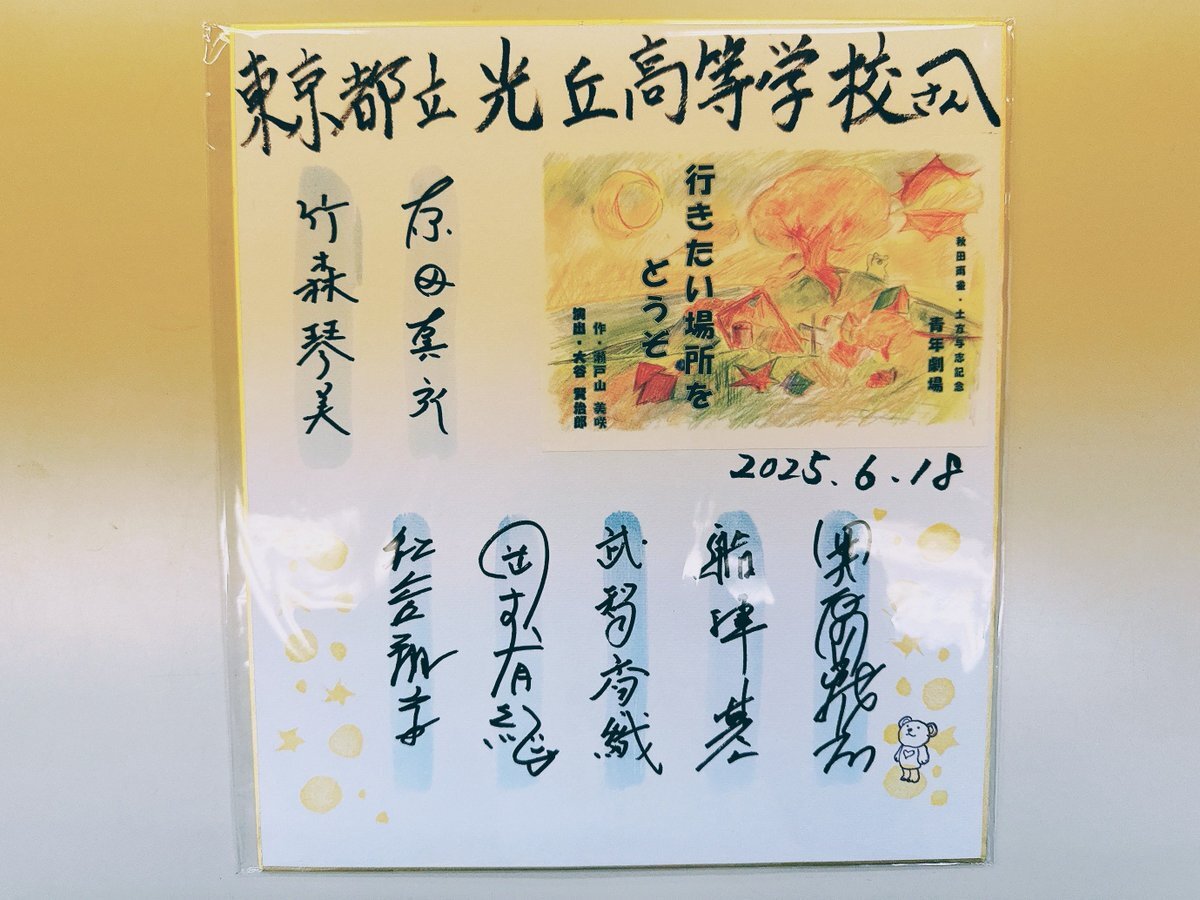 東京都立光丘高等学校さんへ
秋田雨雀・土方与志記念
青年劇場
行きたい場所を
どうぞ
作・瀬戸山 美咲
演出・大谷 賢治郎
原田真
竹森琴美
2025.6.18
船津基
武智香織